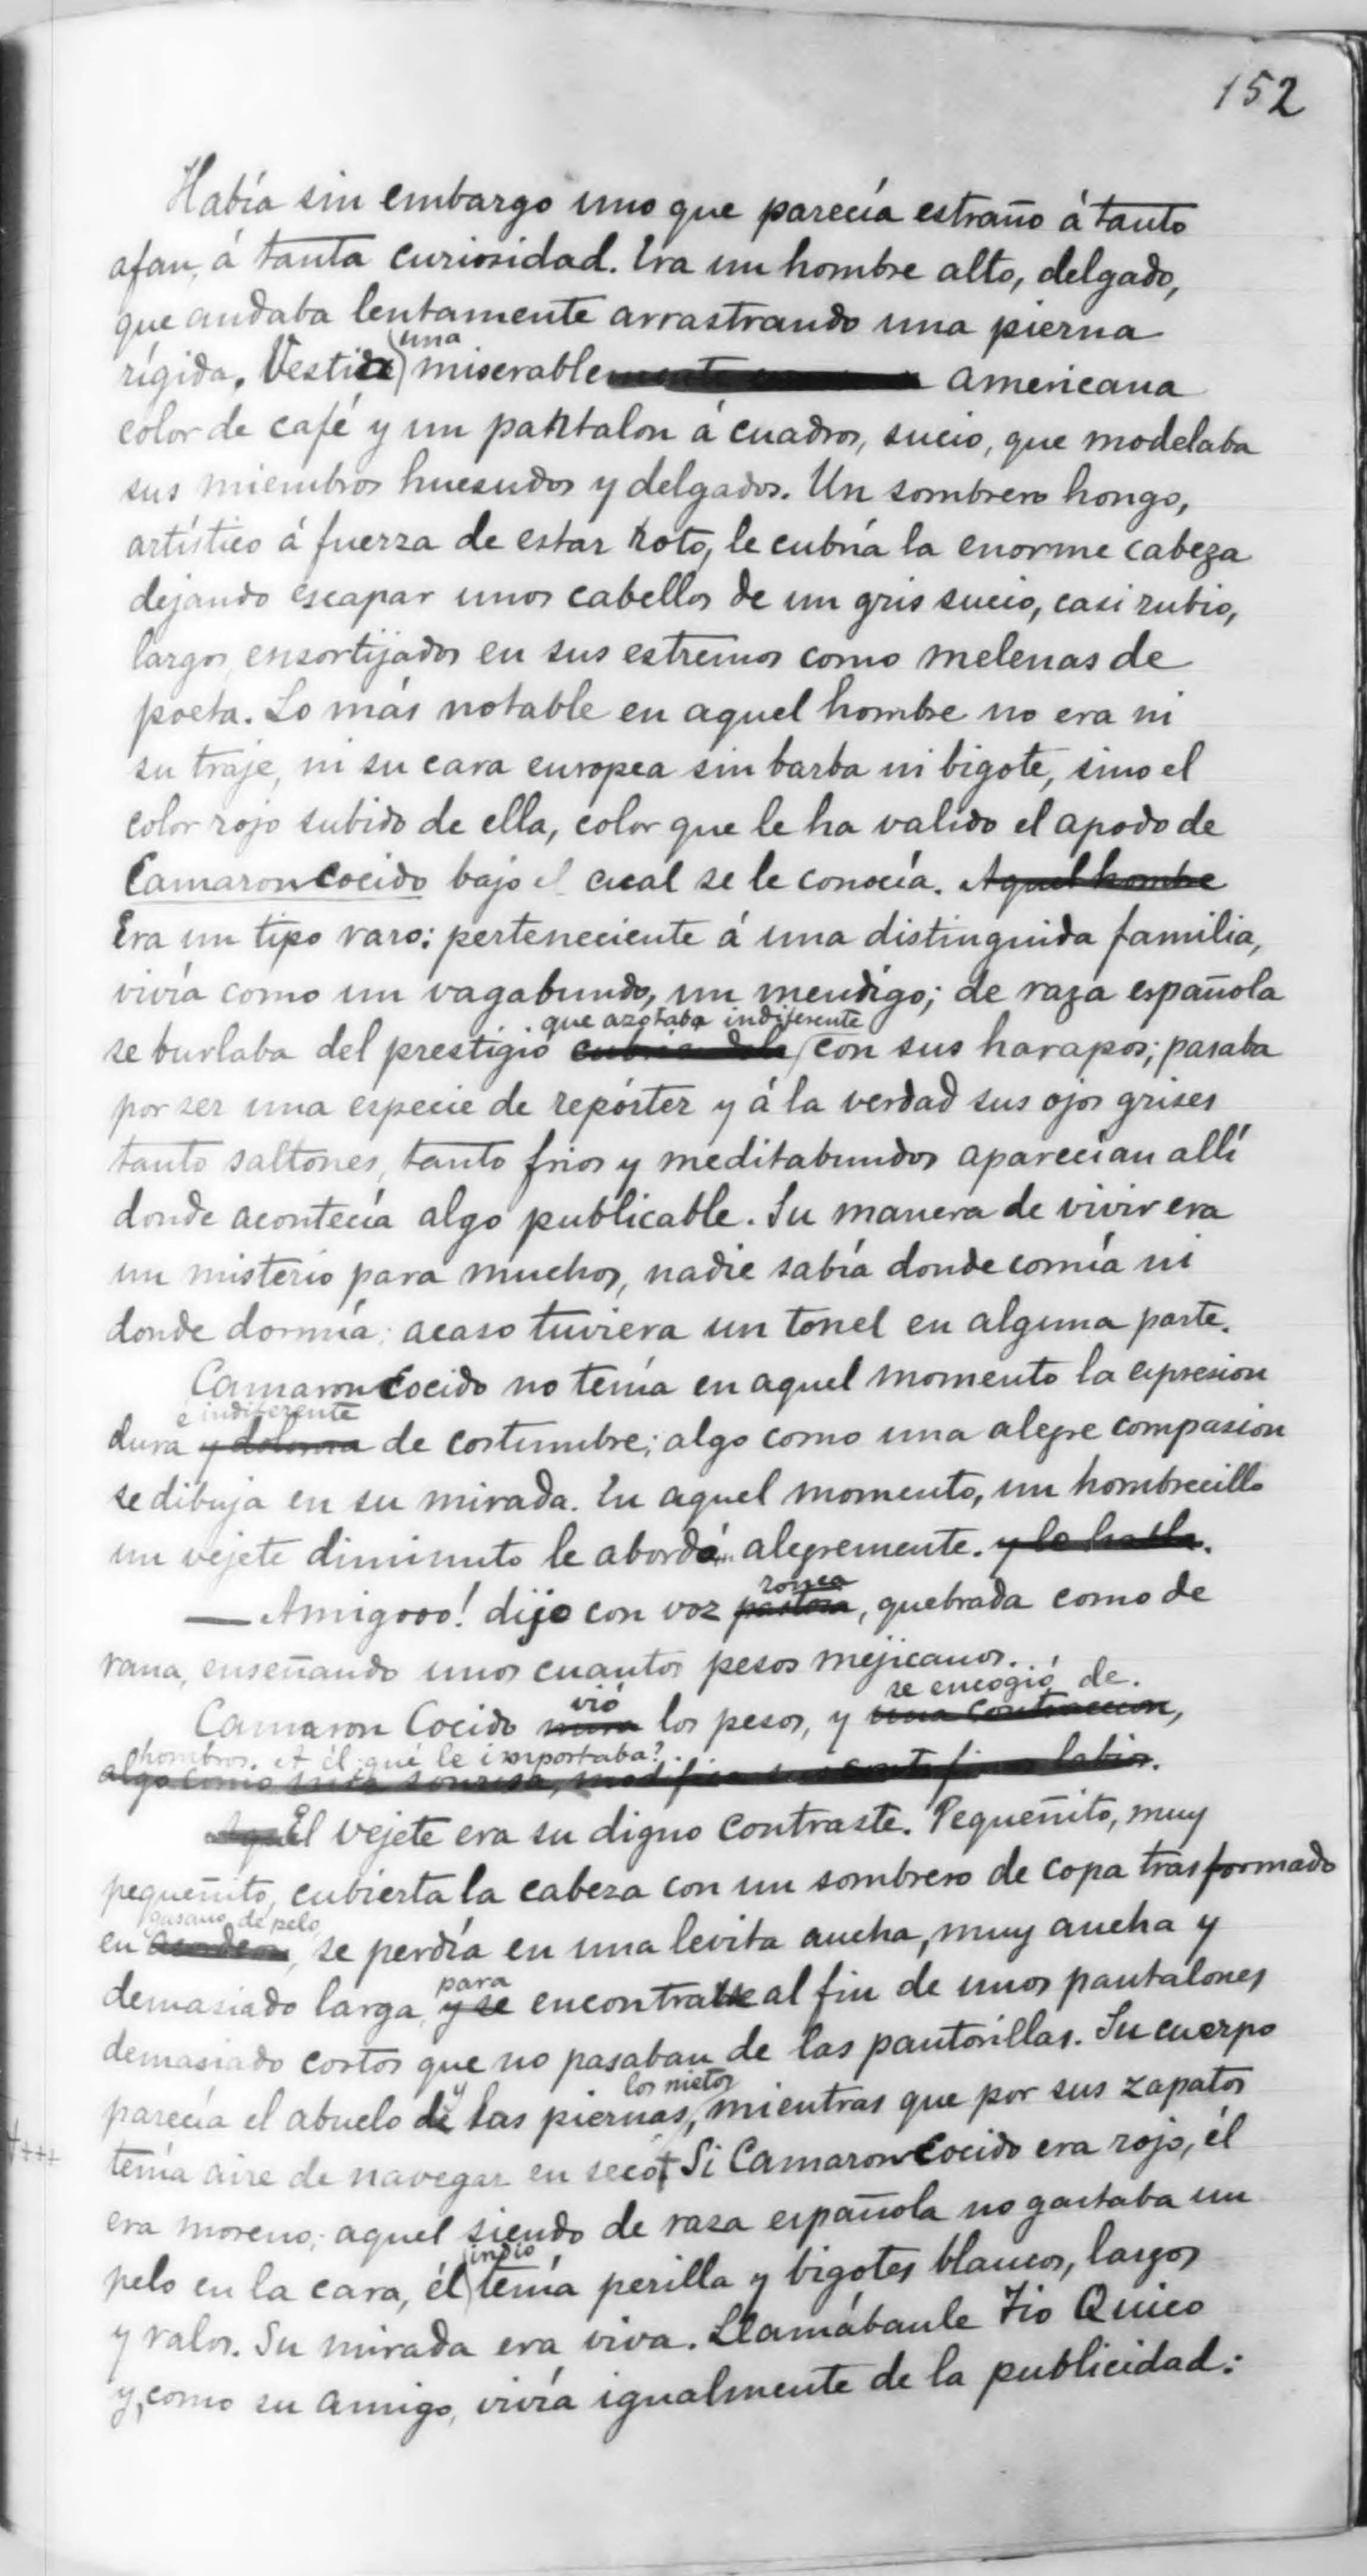 152
Había sin embargo uno que parecía estraño á tanto
afan, á tanta curiosidad. Era un hombre alto, delgado,
que andaba lentamente arrastrando una pierna
una
rígida. Vestía miserable americana
color de café y un pantalon á cuadros, sucio, que modelaba
sus miembros huesudos y delgados. Un sombrero hongo,
artístico á fuerza de estar roto, le cubría la enorme cabeza
dejando escapar unos cabellos de un gris sucio, casi rubio,
largos, ensortijados en sus estremos como melenas de
poeta. Lo más notable en aquel hombre no era ni
su traje, ni su cara europea sin barba ni bigote, sino el
color rojo subido de ella, color que le ha valido el apodo de
Camaroncocido bajo el cual se le conocía. Aquel hombre
Era un tipo raro: perteneciente á una distinguida familia,
vivía como un vagabundo, un mendigo; de raza española
que azotaba indiferente
se burlaba del prestigio con sus harapos; pasaba
por ser una especie de repórter y á la verdad sus ojos grises
tanto saltones, tanto frios y meditabundos aparecían allí
donde acontecía algo publicable. Su manera de vivir era
un misterio para muchos, nadie sabía donde comía ni
donde dormía: acaso tuviera un tonel en alguna parte.
Camaroncocido no tenía en aquel momento la espresion
é indiferente
dura de costumbre; algo como una alegre compasion
se dibuja en su mirada. En aquel momento, un hombrecillo
un vejete diminuto le abordó alegremente. y le habla.
— Amigooo! dijo con voz
ronca
pastosa, quebrada como de
rana, enseñando unos cuantos pesos mejicanos.
vió se encogió de
Camaron Cocido mira los pesos, y una contraccion,
hombros. A él ¿qué le importaba?
algo como una sonrisa, labios.
El vejete era su digno contraste. Pequeñito, muy
pequeñito, cubierta la cabeza con un sombrero de copa trasformado
gusano de pelo
en , se perdía en una levita ancha, muy ancha y
para
demasiado larga, y se encontrarse al fin de unos pantalones
demasiado cortos que no pasaban de las pantorillas. Su cuerpo
y los nietos
parecía el abuelo de las piernas, mientras que por sus zapatos
tenía aire de navegar en seco Si Camaroncocido era rojo, él
era moreno; aquel siendo de raza española no gastaba un
indio
pelo en la cara, él tenía perilla y bigotes blancos, largos
y ralos. Su mirada era viva. Llamábanle Tio Quico
y, como su amigo, vivía igualmente de la publicidad: